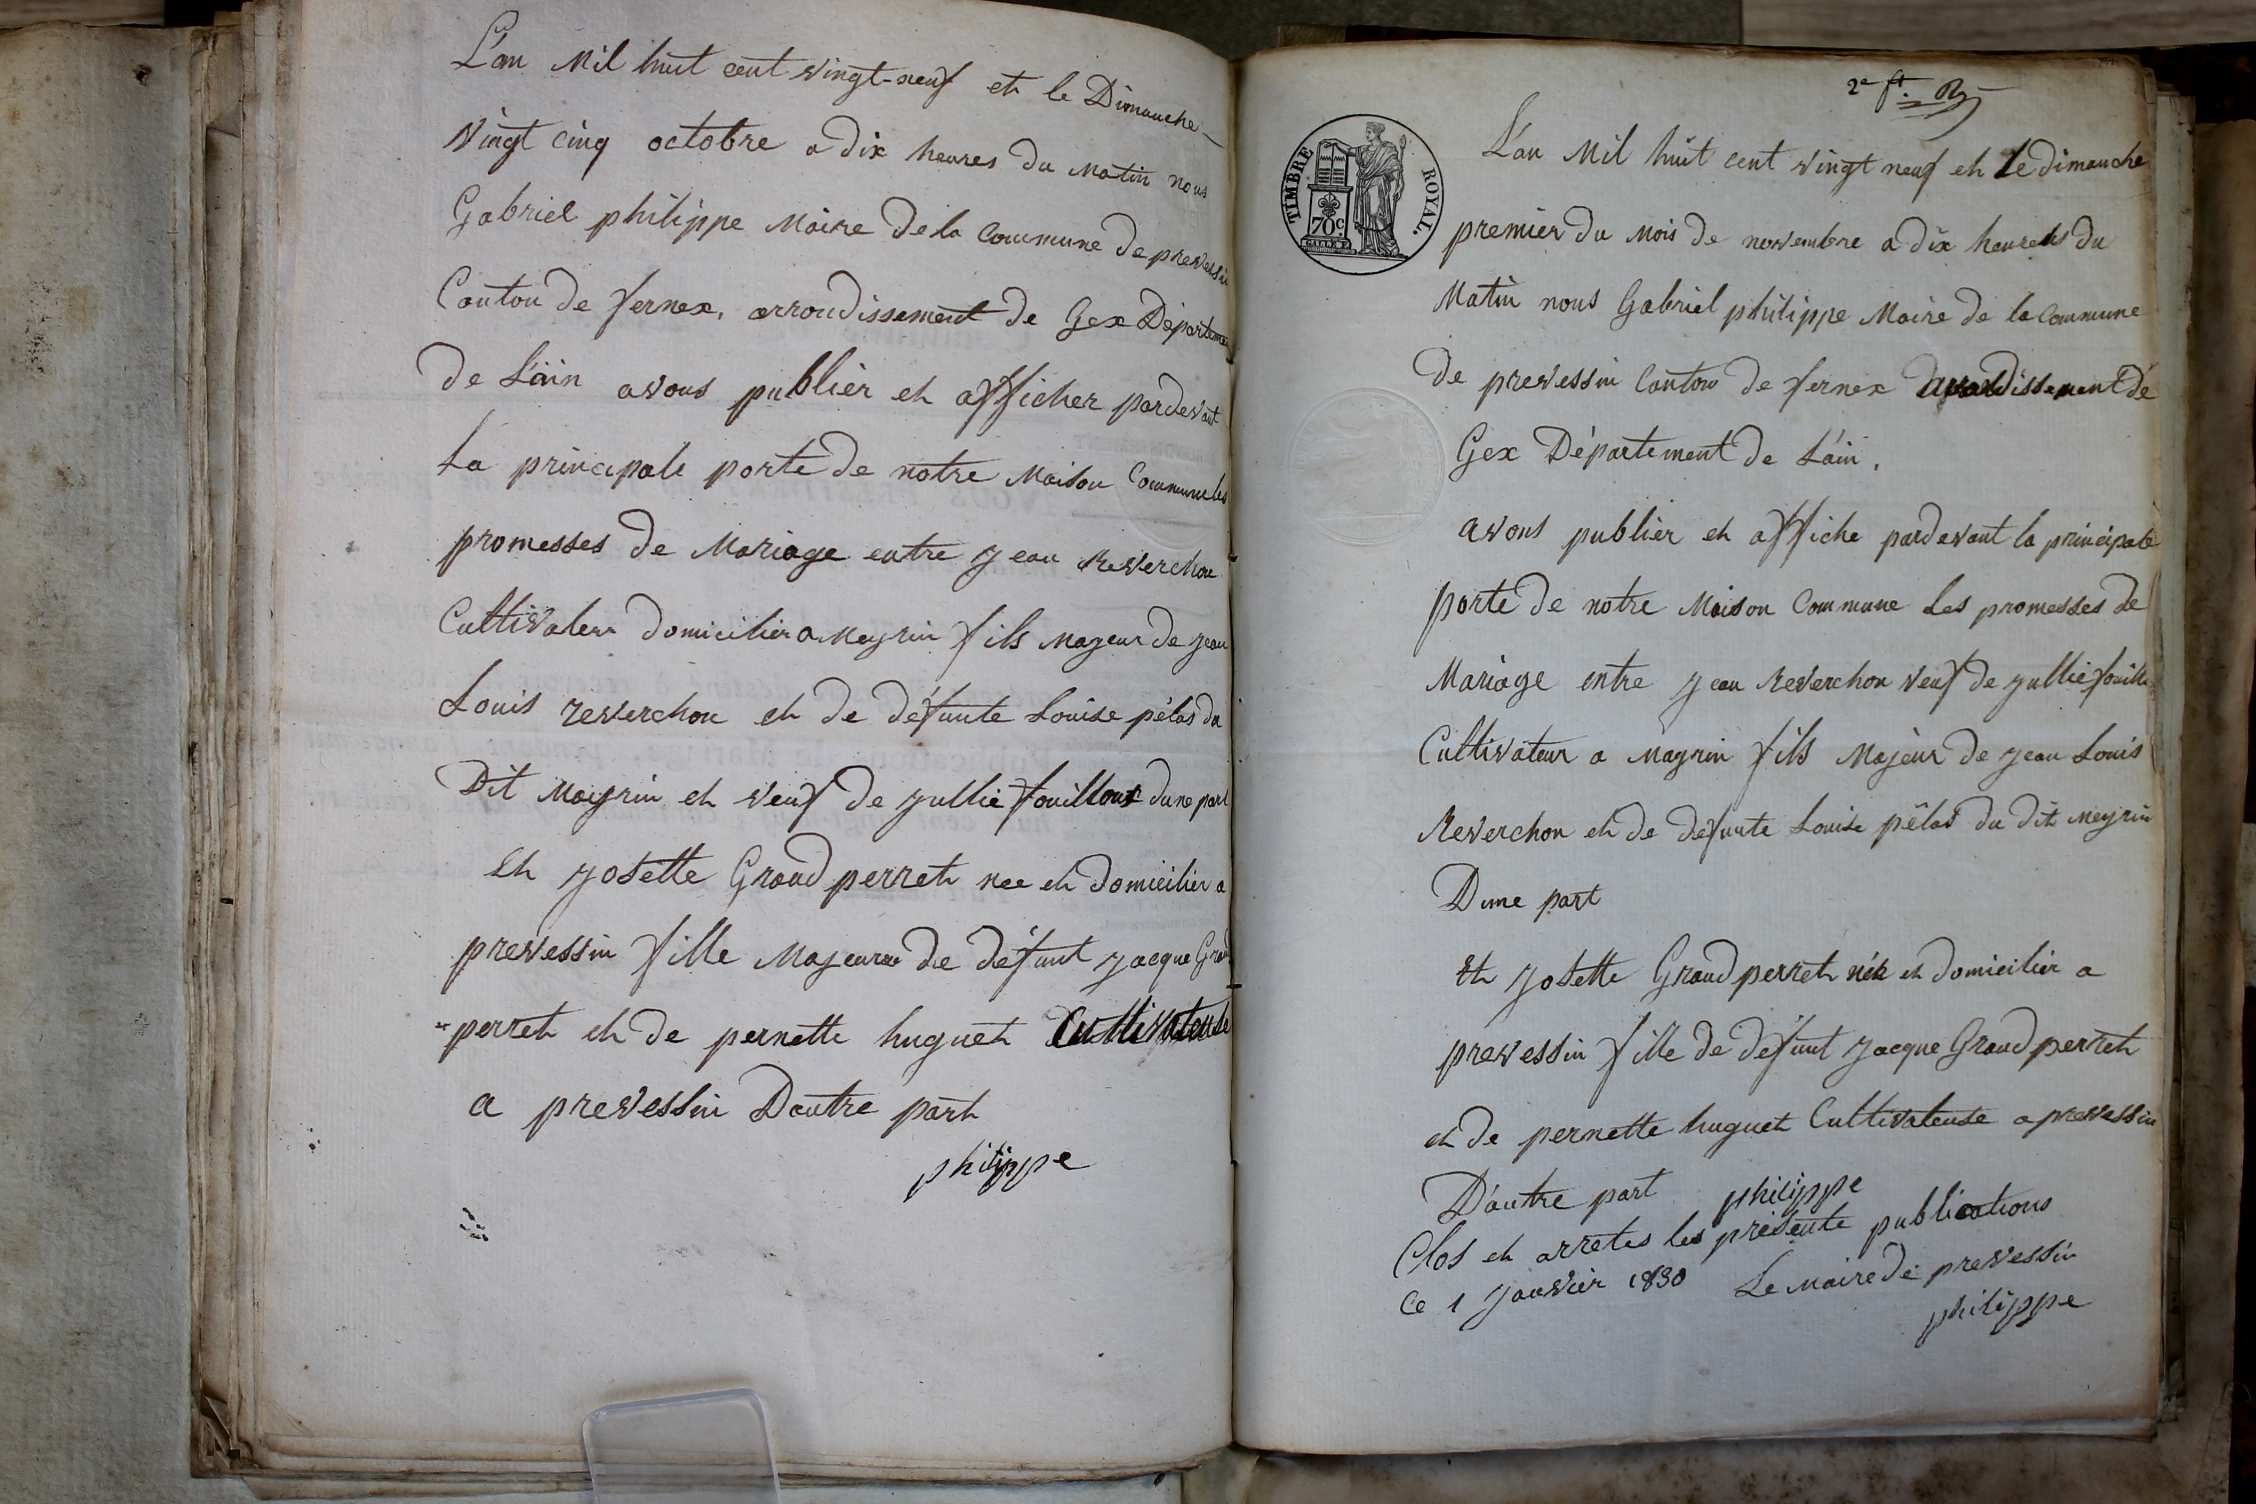 L'an Mil huit cent vingt-neuf et le Dimanche
vingt cinq octobre a dix heures du Matin nous
Gabriel philippe Maire de la Commune de prevessin
Canton de fernex, arrondissement de Gex Département
de L'ain avons publier et afficher pardevant
La principale porte de notre Maison Commune les
promesses de Mariage entre jean Reverchon
Cultivateur domicilier a Meyrin fils Majeur de jean
Louis reverchon et de défunte Louise pélas du
Dit Mayrin et veuf de jullie fouilloux dune part
Et josette Grand perret nee et domicilier a
prevessin fille Majeure de défunt jacque Grand
perret et de pernette huguet Cultivateuse
a prevessin Dautre part
philippe
2e ft.
TIMBRE ROYAL.
70c.
L'an Mil huit cent vingt neuf et le dimanche
premier du Mois de novembre a dix heures du
Matin nous Gabriel philippe Maire de la Commune
de prevessin Canton de fernex arrondissement de
Gex Département de L'ain.
avons publier et affiche pardevant la principale
porte de notre Maison Commune Les promesses de
Mariage entre jean Reverchon veuf de jullie fouille
Cultivateur a Mayrin fils Majeur de jean Louis
Reverchon et de defunte Louise pélas du dit Meyrin
Dune part
Et josette Grand perret née et domicilier a
prevessin fille de défunt jacque Grand perret
et de pernette huguet Cultivateuse a prevessin
D'autre part philippe
Clos et arretes les présente publications
Ce 1 janvier 1830 Le Maire de prevessin
philippe